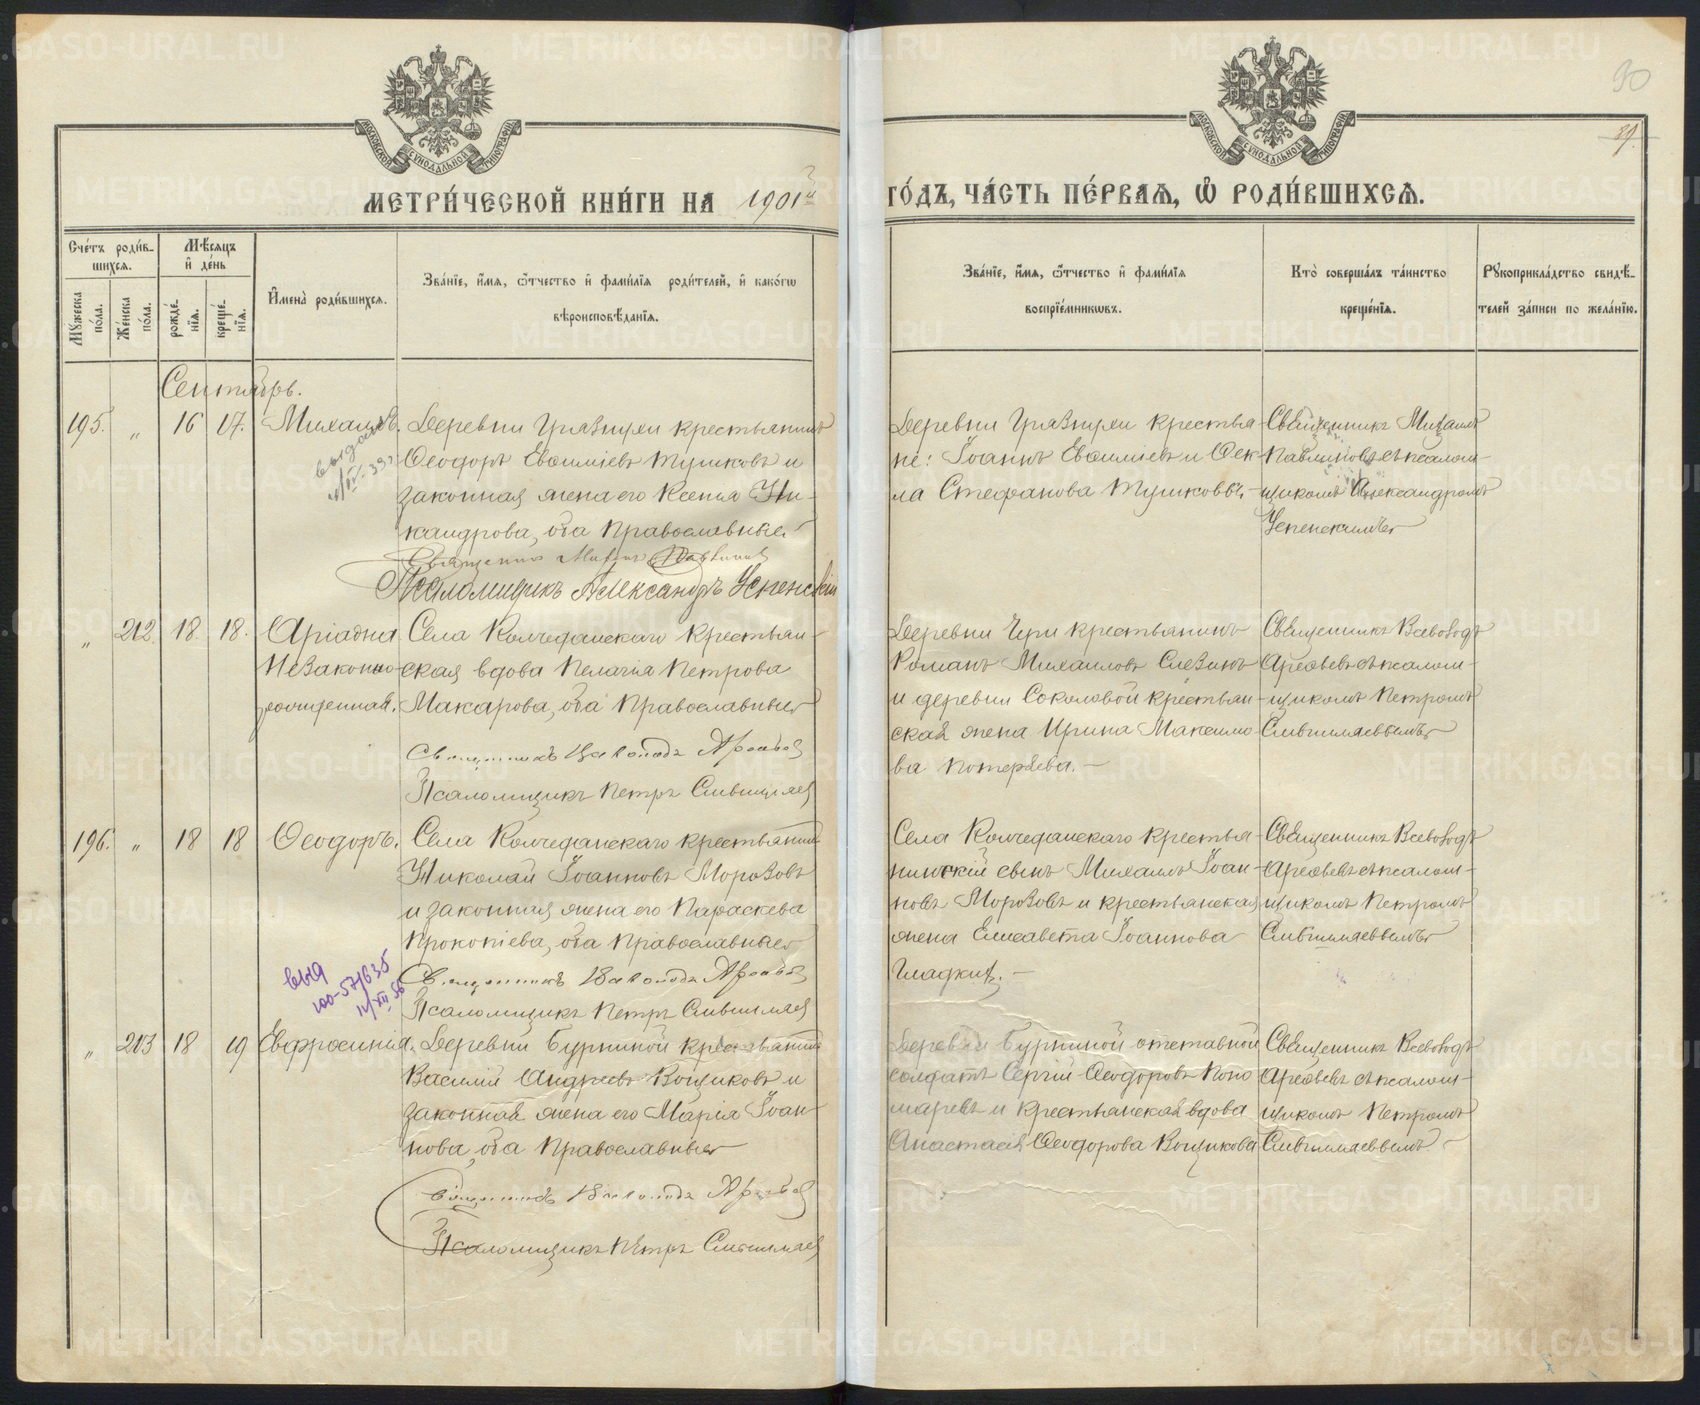 МЕТРИ́ЧЕСКОЙ КНИ́ГИ НА 1901й
ГО́ДЪ, ЧА́СТЬ ПЕ́РВАЯ, Ѡ҆ РОДИ́ВШИХСЯ.
90
Сче́тъ роди́в-
шихся.
Мужеска по́ла.
Же́нска по́ла.
Мѣ́сяцъ
и҆ де́нь
рожде́нїя.
креще́нїя.
И҆мена̀ роди́вшихся.
Зва́нїе, и҆́мя, ѻ҆́тчество и҆ фами́лїя роди́телей, и҆ како́гѡ
вѣроисповѣ́данїя.
Зва́нїе, и҆́мя, ѻ҆́тчество и҆ фами́лїя
воспрїе́мникѡвъ.
Кто̀ соверша́лъ та́инство
креще́нїя.
Рꙋкоприкла́дство свидѣ́-
телей за́писи по жела́нїю.
Сентябрь.
195. „ 16 17. Михаилъ.
Деревни Грязнухи крестьянинъ
Ѳеодоръ Евѳиміевъ Тушковъ и
законная жена его Ксенія Ни-
кандрова, оба Православные
Священникъ Михаилъ Павлиновъ
Псаломщикъ Александръ Успенскій
Деревни Грязнухи крестья-
не: Іоаннъ Евѳиміевъ и Ѳек-
ла Стефанова Тушковы.
Священникъ Михаилъ
Павлиновъ съ псалом-
щикомъ Александромъ
Успенскимъ
„ 212 18. 18. Аріадна
Незаконно-
рожденная.
Села Колчеданскаго крестьян-
ская вдова Пелагія Петрова
Макарова, оба Православные
Священникъ Всеволодъ
Псаломщикъ Петръ
Деревни Чери крестьянинъ
Романъ Михаиловъ
и деревни Соколовой крестьян-
ская жена Ирина Максимо-
ва Потеряева.
Священникъ Всеволодъ
съ псалом-
щикомъ Петромъ
196. „ 18 18 Ѳеодоръ.
Села Колчеданскаго крестьянинъ
Николай Іоанновъ Морозовъ
и законная жена его Параскева
Прокопіева, оба Православные
Священникъ Всеволодъ
Псаломщикъ Петръ
Села Колчеданскаго крестья-
нинскій сынъ Михаилъ Іоан-
новъ Морозовъ и крестьянская
жена Елисавета Іоаннова
Гладких.
Священникъ Всеволодъ
съ псалом-
щикомъ Петромъ
выд
100-571635
11/XII 56
„ 213 18 19 Евфросинія.
Деревни Бурниной крестьянинъ
Василій Андреевъ Вощиковъ и
законная жена его Марія Іоан-
нова, оба Православные
Священникъ Всеволодъ
Псаломщикъ Петръ
Деревни Бурниной отставной
солдатъ Сергій Ѳеодоровъ Поно-
маревъ и крестьянская вдова
Анастасія Ѳеодорова Вощикова
Священникъ Всеволодъ
съ псалом-
щикомъ Петромъ
METRIKI.GASO-URAL.RU